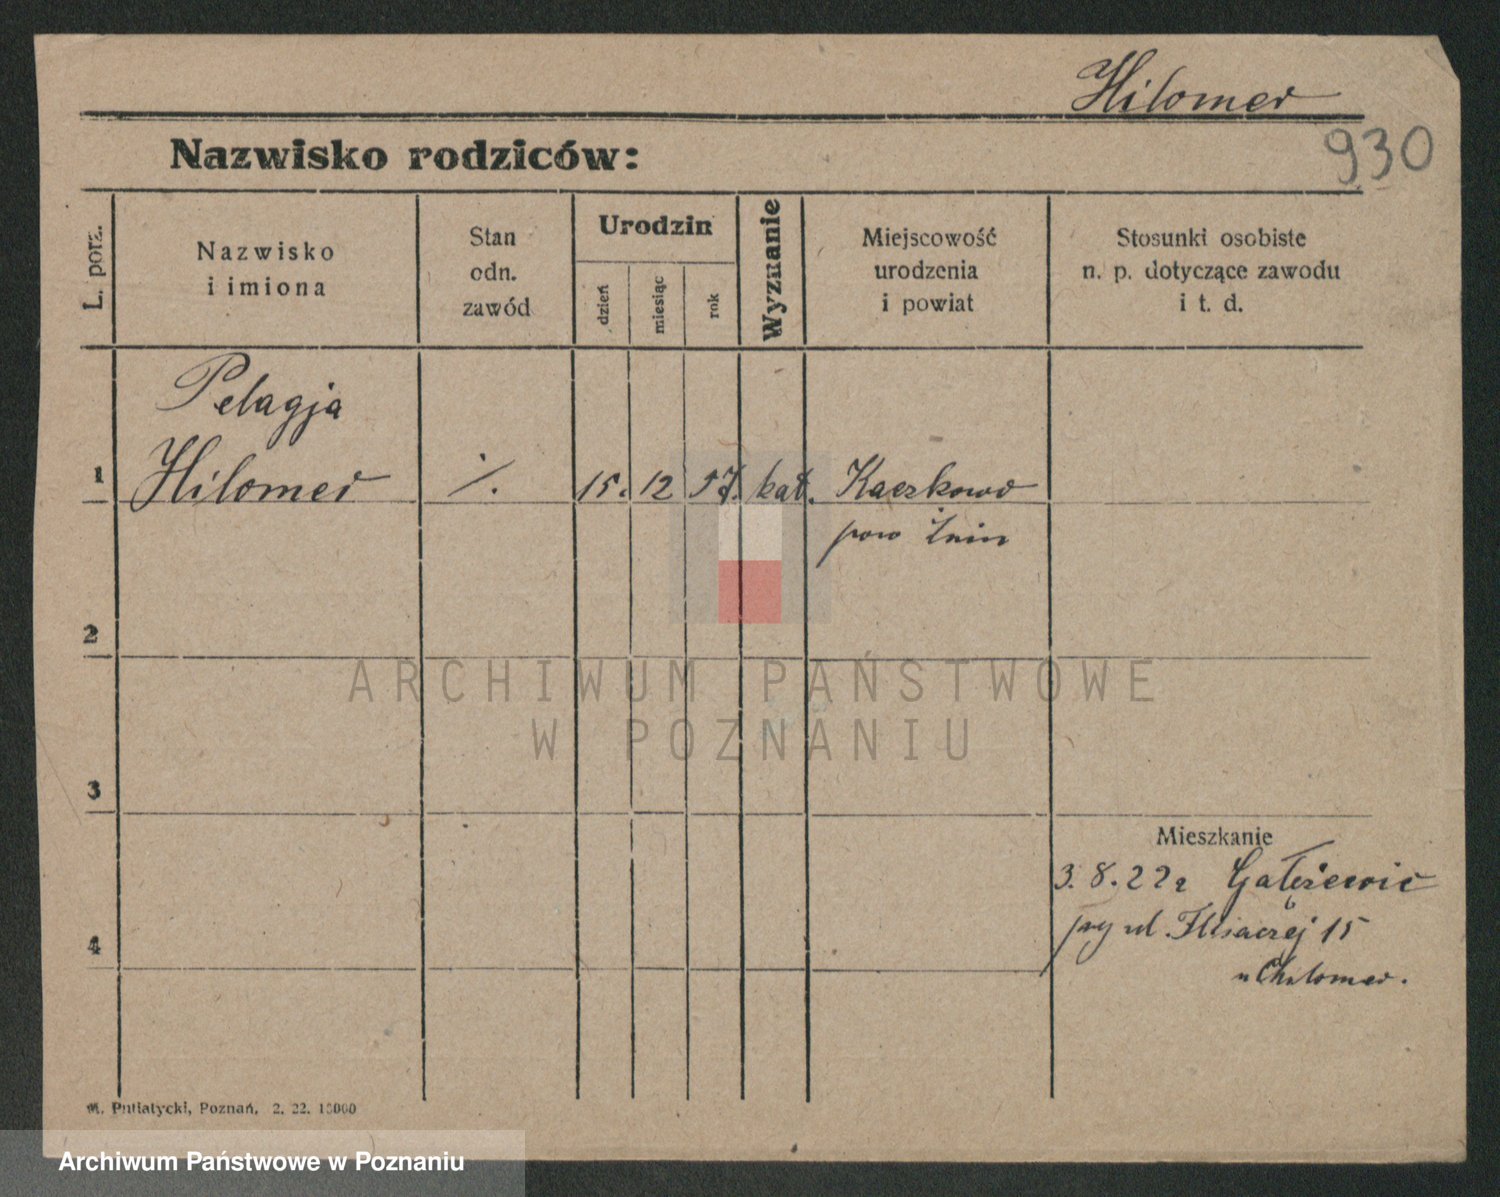 Hilomer
930
Nazwisko rodziców:
L. porz.
Nazwisko
i imiona
Stan
odn.
zawód
Urodzin
dzień
miesiąc
rok
Wyznanie
Miejscowość
urodzenia
i powiat
Stosunki osobiste
n. p. dotyczące zawodu
i t. d.
Pelagja
1 Hilomer ./. 15. 12 57. kat. Kaczkowo
pow Żnin
2
3
4
Mieszkanie
3.8.22
przy ul. Flisaczej 15
u Chilomer.
M. Putiatycki, Poznań, 2. 22. 15000
ARCHIWUM PAŃSTWOWE
W POZNANIU
Archiwum Państwowe w Poznaniu